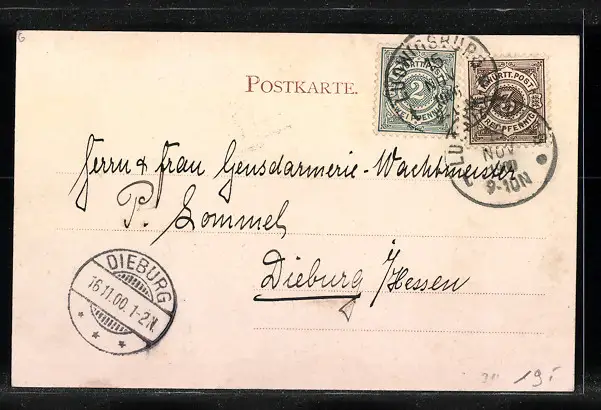 POSTKARTE.
K. WÜRTT. POST
2
ZWEI PFENNIG
K. WÜRTT. POST
3
DREI PFENNIG
LUDWIGSBURG
NOV
1900
NOV
9-10N
Herrn & Frau Gensdarmerie-Wachtmeister
P. Lommel
Dieburg /Hessen
DIEBURG
16.11.00.1-2N.
19